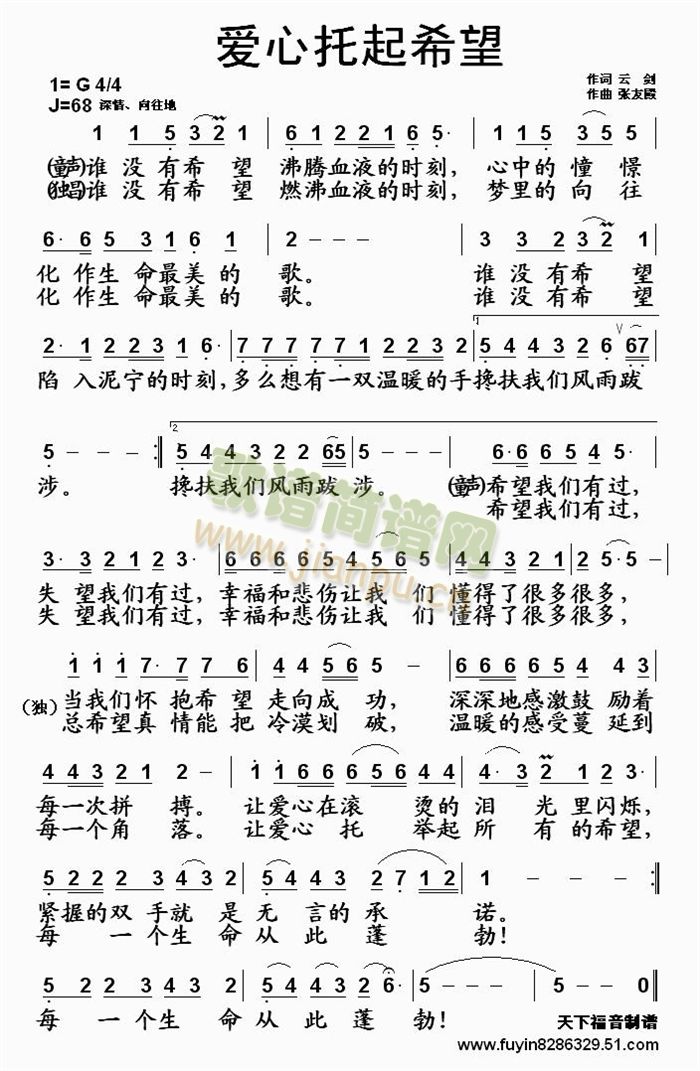 爱心托起希望
1= G 4/4
作词 云 剑
J=68 深情、向往地
作曲 张友殿
1 1 5 3 2 1 | 6 1 2 2 1 6 1 6 5· | 1 1 1 5 3 5 5
(童声)谁 没 有 希 望 沸腾血液的时刻, 心中的 憧 憬
(独唱)谁 没 有 希 望 燃沸血液的时刻, 梦里的 向 往
6· 6 5 3 1 6 1 | 2 – – – | 3 3 2 3 2 1
化 作生 命最美 的 歌。 谁 没 有希 望
化 作生 命最美 的 歌。 谁 没 有希 望
2· 1 2 2 3 1 6· | 7 7 7 7 7 1 2 2 3 2 | 5 4 4 3 2 6 67
陷 入泥宁的时刻,多么想有一双温暖的手搀扶我们风雨跋
5 – – – :‖ 5 4 4 3 2 2 65 | 5 – – – | 6· 6 6 5 4 5·
涉。 搀扶我们风雨跋 涉。 (童声)希望我们有过,
希望我们有过,
3· 3 2 1 2 3· | 6 6 6 6 5 4 5 6 5 | 4 4 3 2 1 2· 5· –
失 望我们有过,幸福和悲伤让我 们 懂得了很多很多,
失 望我们有过,幸福和悲伤让我 们 懂得了很多很多,
1 1 1 7· 7 7 6 | 4 4 5 6 5 – | 6 6 6 7 6 5 3
当我们怀 抱希 望 走向成 功, 深深地感激鼓 励着
(独) 总希望真 情能 把 冷漠划 破, 温暖的感受蔓 延到
4 4 3 2 1 2 – | 1 1 6 6 6 5 6 4 | 4· 3 2 1 2 3·
每一次拼 搏。 让爱心在滚 烫的 泪 光 里闪烁,
每一个角 落。 让爱心 托 举起 所 有 的希望,
5 2 2 2 3 4 3 | 5 4 4 3 2 7 1 2 | 1 – – – :‖
紧握的双 手就 是 无 言的 承 诺。
每 一 个生 命 从 此 蓬 勃!
5 2 2 3 4 3 | 5 4 4 3 2 5 6 | 5 – – – | 5 – – 0 ‖
每 一 个生 命 从 此 蓬 勃!
天下福音制谱
www.fuyin8286329.51.com
歌谱简谱网
www.jianpu.cn